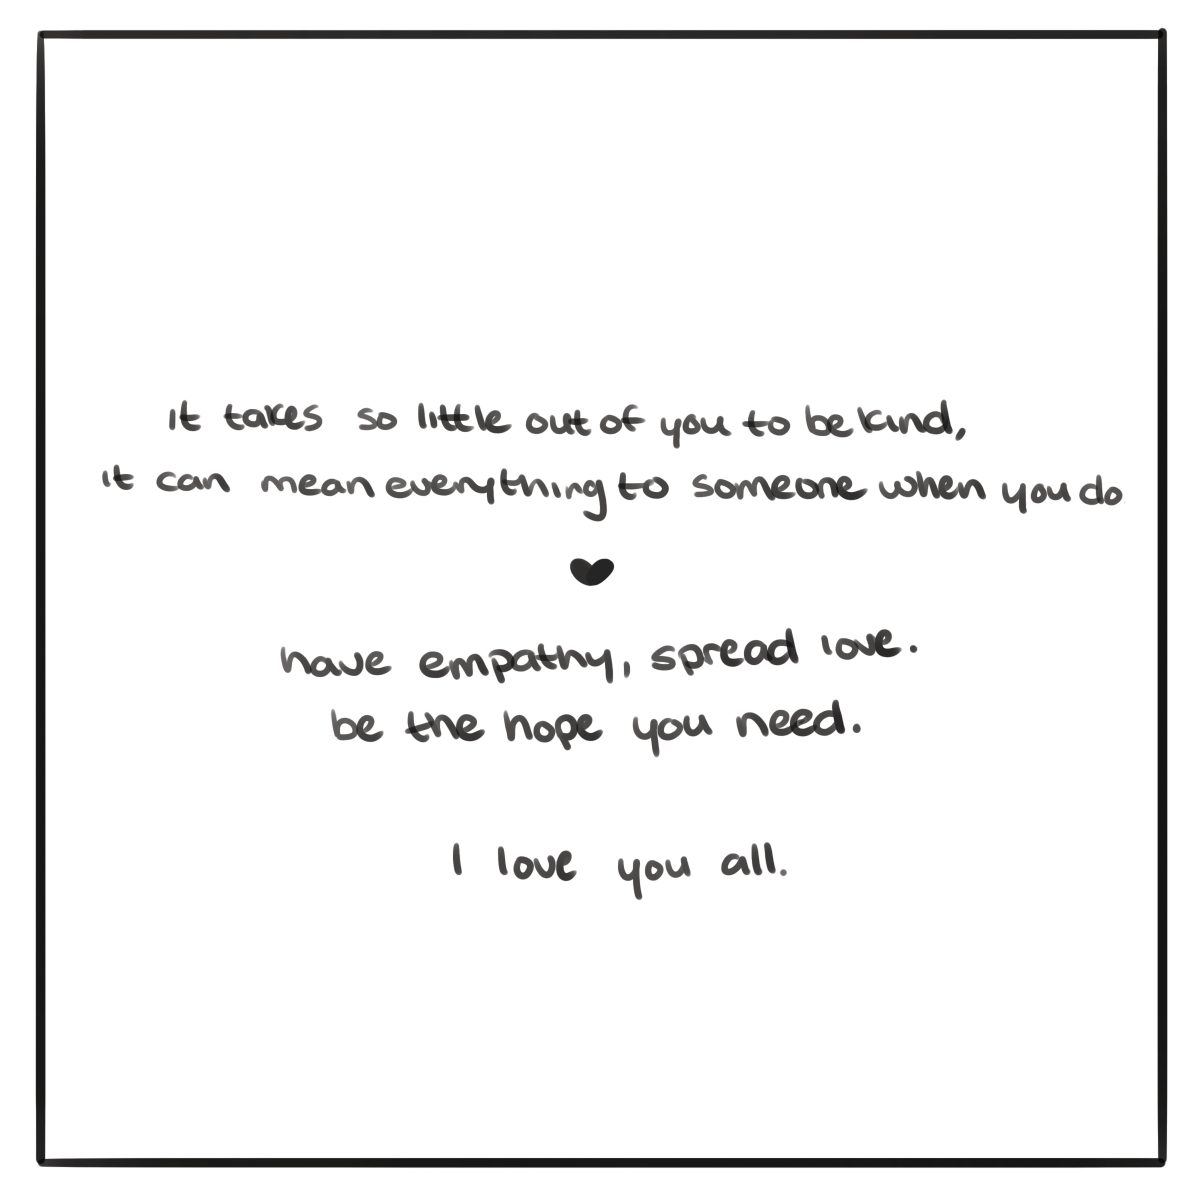 it takes so little out of you to be kind,
it can mean everything to someone when you do
have empathy, spread love.
be the hope you need.
I love you all.